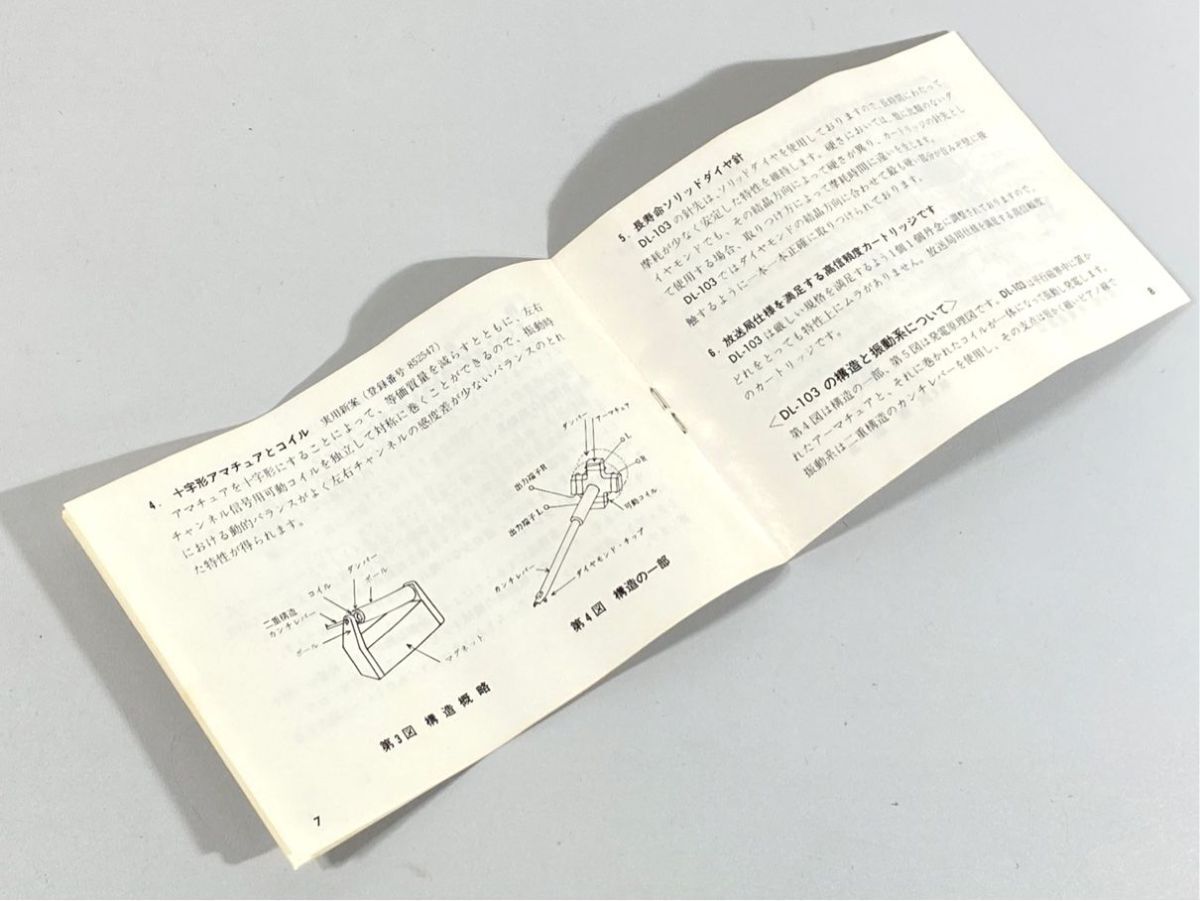 4. 十字形アマチュアとコイル 実用新案(登録番号 852547)
アマチュアを十字形にすることによって、等価質量を減らすとともに、左右
チャンネル信号用可動コイルを独立して対称に巻くことができるので、振動時
における動的バランスがよく左右チャンネルの感度差が少ないバランスのとれ
た特性が得られます。
コイル
ダンパー
ポール
二重構造
カンチレバー
ポール
マグネット
第3図 構造概略
ダンパー
アーマチュア
L
R
出力端子R
出力端子L
可動コイル
カンチレバー
ダイヤモンド・チップ
第4図 構造の一部
7
5. 長寿命ソリッドダイヤ針
DL-103 の針先は、ソリッドダイヤを使用しておりますので、長時間にわたって
摩耗が少なく安定した特性を維持します。硬さにおいては、他に比類のないダ
イヤモンドでも、その結晶方向によって硬さが異り、カートリッジの針先とし
て使用する場合、取りつけ方によって摩耗時間に違いを生じます。
DL-103 ではダイヤモンドの結晶方向に合わせて最も硬い部分が音みぞ壁に接
触するように一本一本正確に取りつけられております。
6. 放送局仕様を満足する高信頼度カートリッジです
DL-103 は厳しい規格を満足するよう1個1個丹念に調整されておりますので、
どれをとっても特性上にムラがありません。放送局用仕様を満足する高信頼度
のカートリッジです。
〈DL-103 の構造と振動系について〉
第4図は構造の一部、第5図は発電原理図です。DL-103 は平行磁界中に置か
れたアーマチュアと、それに巻かれたコイルが一体になって振動し発電します。
振動系は二重構造のカンチレバーを使用し、その支点は短かく細いピアノ線で
8